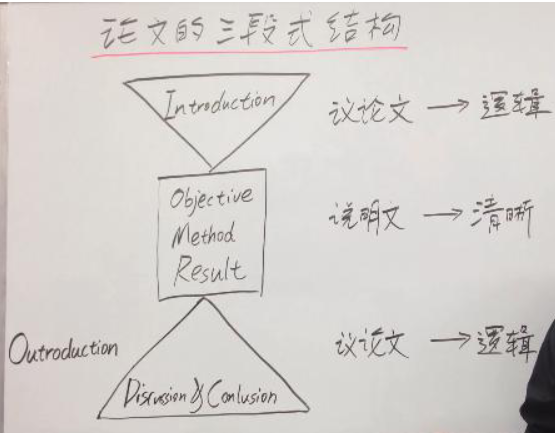 论文的三段式结构
Introduction 议论文 → 逻辑
Objective
Method 说明文 → 清晰
Result
Outroduction 议论文 → 逻辑
Discussion & Conlusion